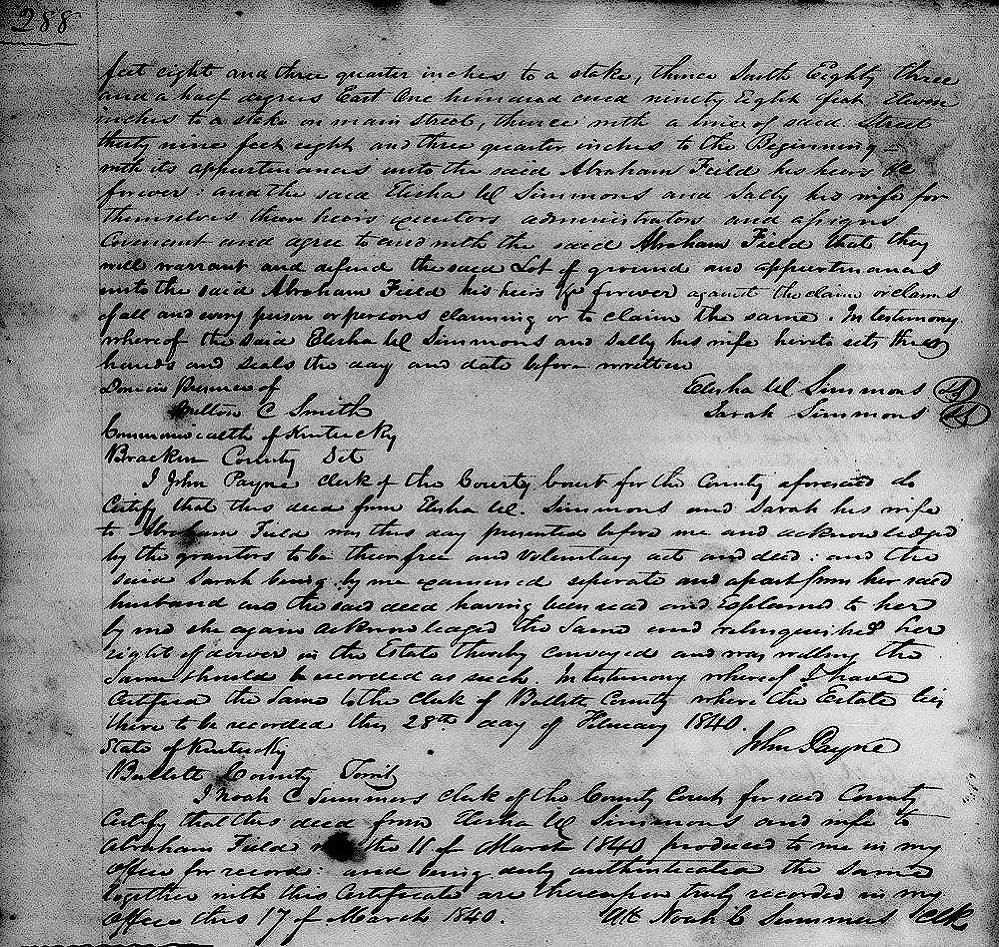 288
feet eight and three quarter inches to a stake, thence South Eighty three
and a half degrees East One hundred and ninety Eight feet Eleven
inches to a stake on main street, thence with a line of said Street
thirty nine feet eight and three quarter inches to the Beginning –
with its appurtenances unto the said Abraham Field his heirs &c
forever : and the said Elisha W Simmons and Sally his wife for
themselves their heirs executors administrators and assigns
Covenant and agree to and with the said Abraham Field that they
will warrant and defend the said Lot of ground and appurtenances
unto the said Abraham Field his heirs &c forever against the claim or claims
of all and every person or persons claiming or to claim the same. In testimony
whereof the said Elisha W Simmons and Sally his wife hereto sets their
hands and seals the day and date before written
Done in Presence of Elisha W Simmons
C Smith Sarah Simmons
Commonwealth of Kentucky
Bracken County Sct
I John Payne clerk of the County court for the County aforesaid do
Certify that this deed from Elisha W. Simmons and Sarah his wife
to Abraham Field was this day presented before me and acknowledged
by the grantors to be their free and voluntary act and deed : and the
said Sarah being by me examined seperate and apart from her said
husband and the said deed having been read and Explained to her
by me she again acknowledged the Same and relinquished her
right of dower in the Estate thereby conveyed and was willing the
Same should be recorded as such. In testimony whereof I have
Certified the Same to the Clerk of Bullitt County where the Estate lies
there to be recorded this 28th day of February 1840.
John Payne
State of Kentucky
Bullitt County
I Noah C Summers Clerk of the County Court for said County
Certify that this deed from Elisha W Simmons and wife to
Abraham Field was the 11 of March 1840 produced to me in my
Office for record : and being duly authenticated the same
together with this Certificate are thereupon truly recorded in my
office this 17 of March 1840. Att Noah C Summers Clk